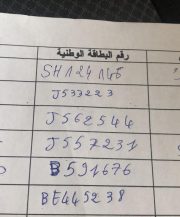 رقم البطاقة الوطنية
SH124145
J533223
J562544
J557231
B591676
BE445238